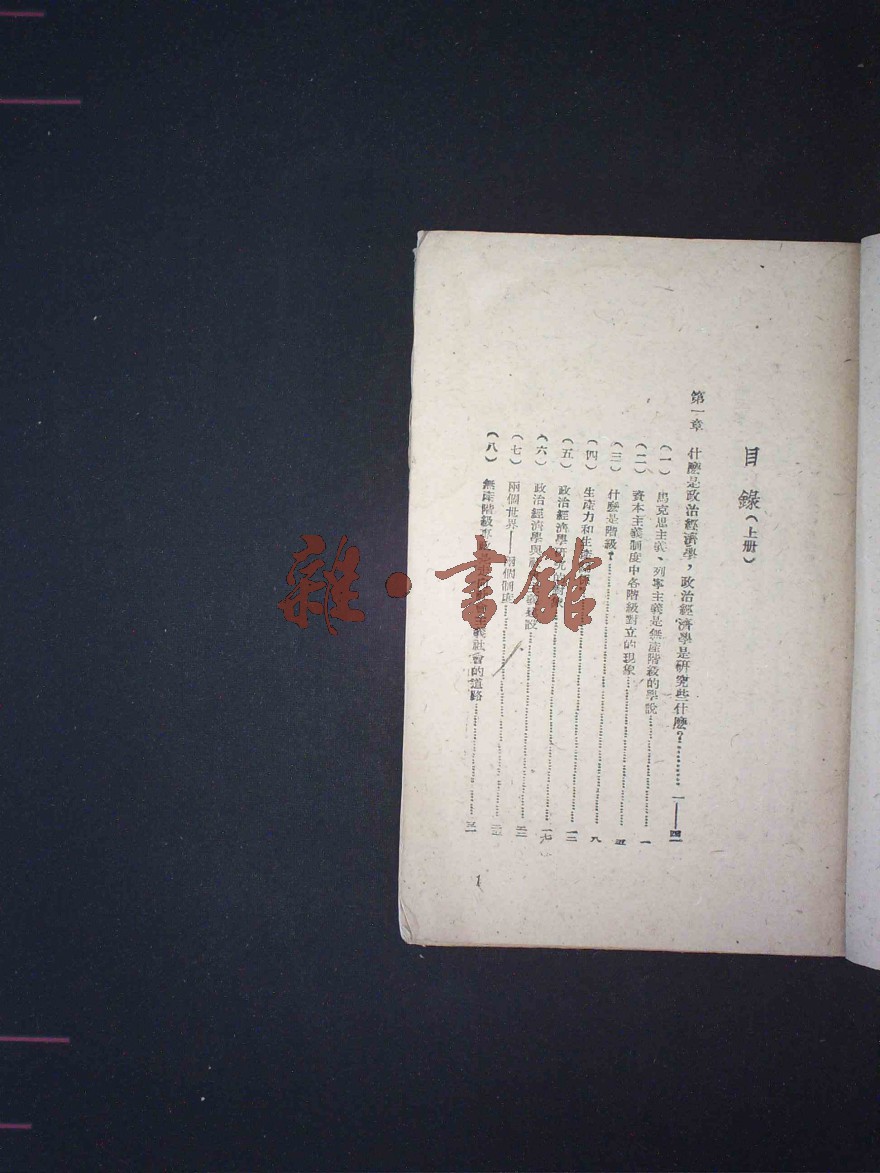 目錄（上册）
第一章 什麽是政治經濟學，政治經濟學是研究些什麽？………… 一——四一
（一） 馬克思主義、列寧主義是無產階級的學說………… 一
（二） 資本主義制度中各階級對立的現象………… 五
（三） 什麽是階級？………… 九
（四） 生產力和生產………… 一二
（五） 政治經濟學研究的對象………… 一七
（六） 政治經濟學與社會主義建設…………
（七） 兩個世界——兩個制度…………
（八） 無產階級專政 主義社會的道路…………
1
雜·書館